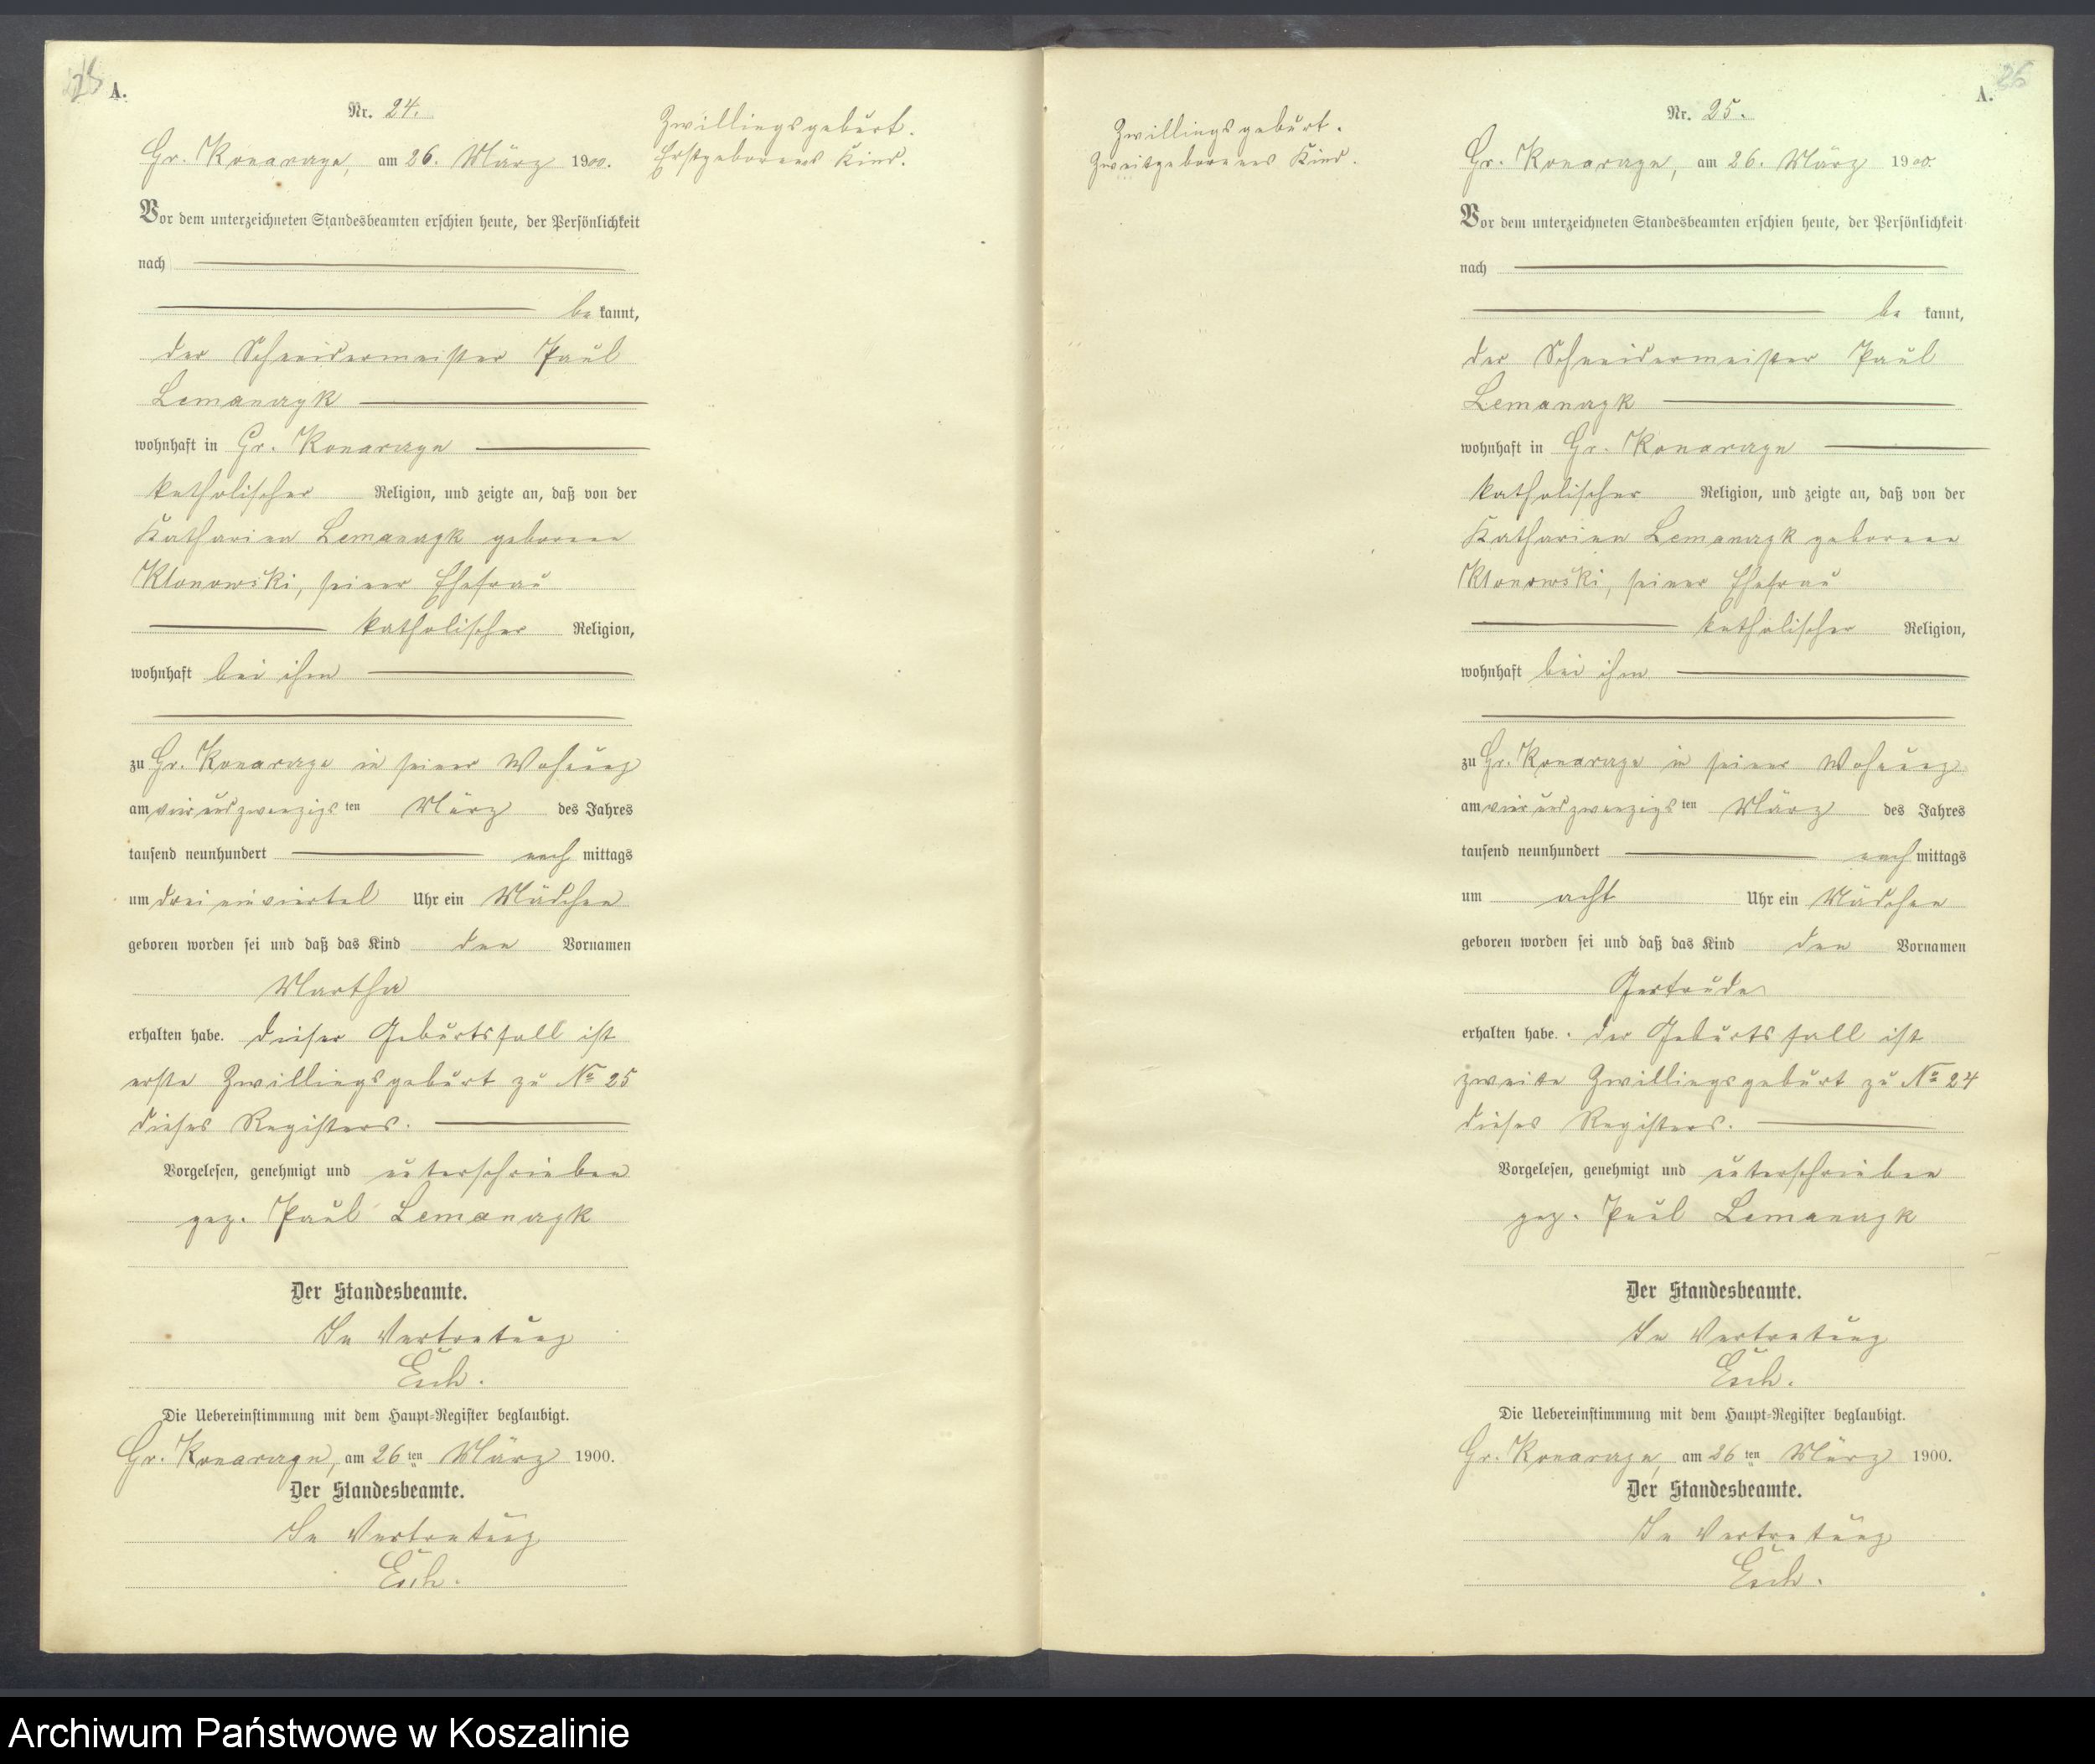 25
A.
Nr. 24.
Gr. Konarczyn, am 26. März 1900.
Zwillingsgeburt.
Erstgeborenes Kind.
Vor dem unterzeichneten Standesbeamten erschien heute, der Persönlichkeit
nach
be kannt,
der Schneidermeister Paul
Lemanczyk
wohnhaft in Gr. Konarczyn
katholischer Religion, und zeigte an, daß von der
Katharina Lemanczyk geborene
Klonowski, seiner Ehefrau
katholischer Religion,
wohnhaft bei ihm
zu Gr. Konarczyn in seiner Wohnung
am vierundzwanzigs ten März des Jahres
tausend neunhundert nach mittags
um drei einviertel Uhr ein Mädchen
geboren worden sei und daß das Kind den Vornamen
Martha
erhalten habe. Dieser Geburtsfall ist
erste Zwillingsgeburt zu No 25
dieses Registers.
Vorgelesen, genehmigt und unterschrieben
gez. Paul Lemanczyk
Der Standesbeamte.
In Vertretung
Esch.
Die Uebereinstimmung mit dem Haupt-Register beglaubigt.
Gr. Konarczyn, am 26 ten März 1900.
Der Standesbeamte.
In Vertretung
Esch.
26
A.
Nr. 25.
Zwillingsgeburt.
Zweitgeborenes Kind.
Gr. Konarczyn, am 26. März 1900.
Vor dem unterzeichneten Standesbeamten erschien heute, der Persönlichkeit
nach
be kannt,
der Schneidermeister Paul
Lemanczyk
wohnhaft in Gr. Konarczyn
katholischer Religion, und zeigte an, daß von der
Katharina Lemanczyk geborene
Klonowski, seiner Ehefrau
katholischer Religion,
wohnhaft bei ihm
zu Gr. Konarczyn in seiner Wohnung
am vierundzwanzigs ten März des Jahres
tausend neunhundert nach mittags
um acht Uhr ein Mädchen
geboren worden sei und daß das Kind den Vornamen
Gertrude
erhalten habe. Der Geburtsfall ist
zweite Zwillingsgeburt zu No 24
dieses Registers.
Vorgelesen, genehmigt und unterschrieben
gez. Paul Lemanczyk
Der Standesbeamte.
In Vertretung
Esch.
Die Uebereinstimmung mit dem Haupt-Register beglaubigt.
Gr. Konarczyn, am 26 ten März 1900.
Der Standesbeamte.
In Vertretung
Esch.
Archiwum Państwowe w Koszalinie